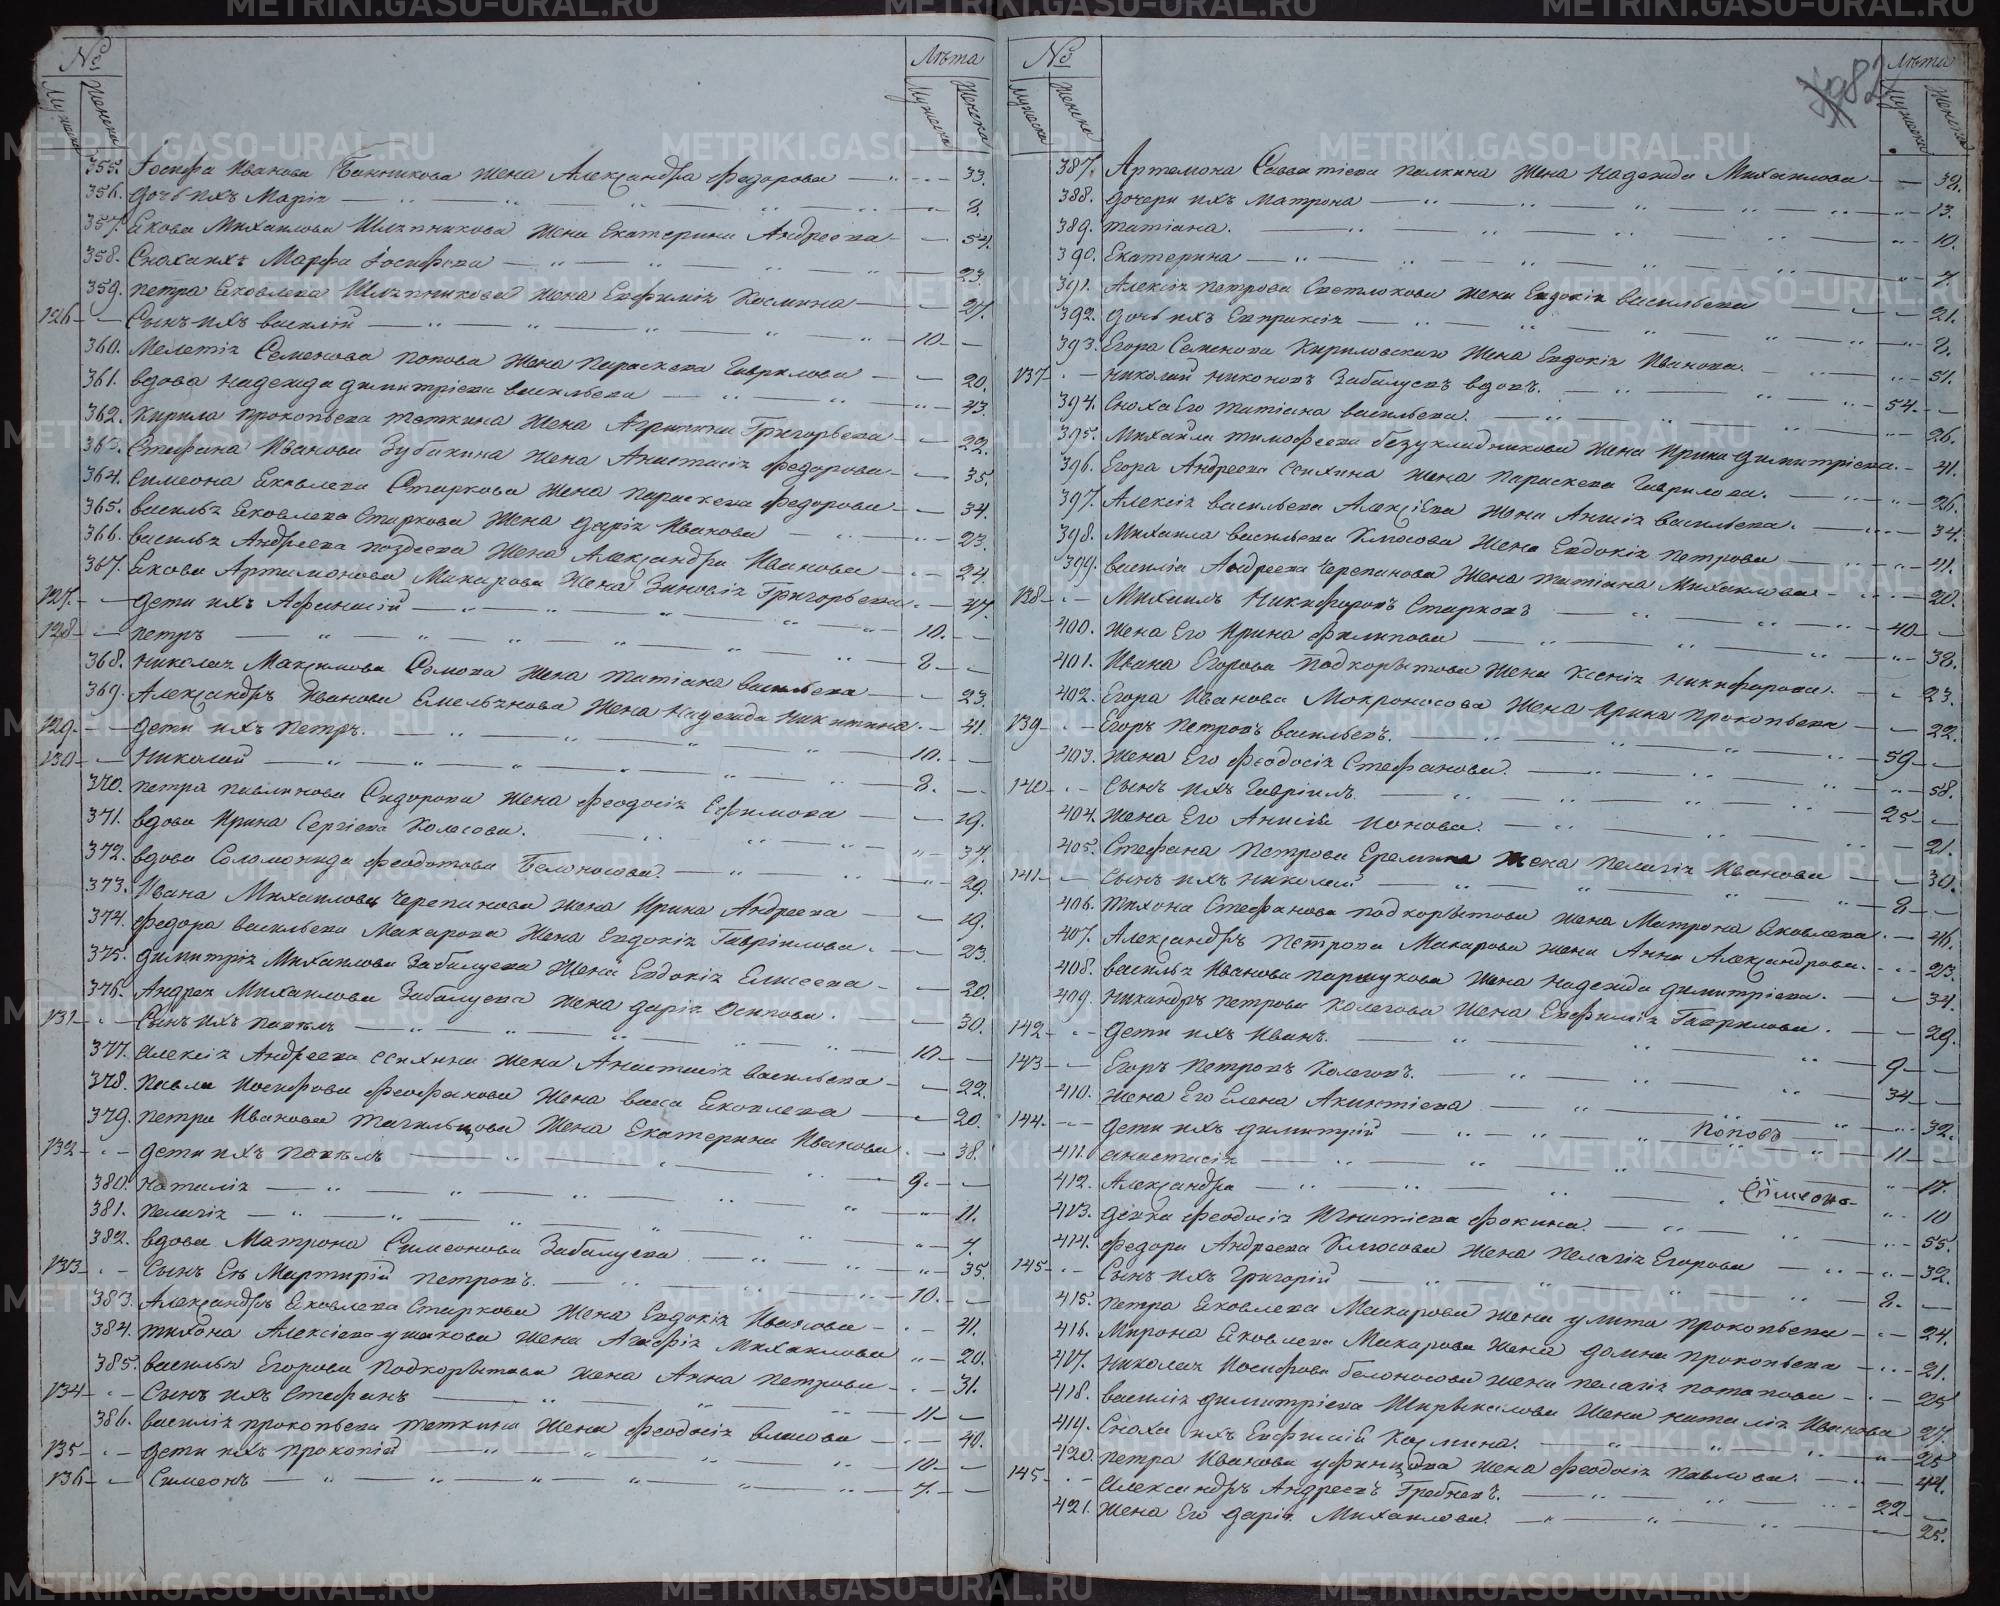 №
Лѣта
Мужеска
Женска
Мужеска
Женска
355. Іосифа Иванова Банникова жена Александра Федорова 33.
356. дочь ихъ Марія 8.
357. Якова Михаилова Шляпникова жена Екатерина Андреева 54.
358. Сноха ихъ Марфа Іосифова 23.
359. петра Яковлева Шляпникова жена Евфимія Космина 27.
126 Сынъ ихъ василій 10.
360. Мелетія Семенова попова жена параскева Гаврилова 20.
361. вдова надежда димитріева васильева 43.
362. Кирила прокопьева теткина жена Агрипина Григорьева 22.
363. Стефана Иванова Зубакина жена Анастасія Федорова 35.
364. Симеона Яковлева Старкова жена параскева Федорова 34.
365. василья Яковлева Старкова жена дарія Иванова 23.
366. василья Андреева поздеева жена Александра Иванова 24.
367. Якова Артамонова Макарова жена Зиновія Григорьева 47.
127. дети ихъ Афанасій 10.
128 петръ 8
368. николая Максимова Сомова жена татіана васильева 23.
369. Александръ Иванова Емельянова жена надежда никитина 41.
129. дети ихъ петръ 10.
130 николай 8.
370. петра павлинова Сидорова жена феодосія Ефимова 19.
371. вдова Ирина Сергіева Колегова 37.
372. вдова Соломонида феодотова Белоносова 29.
373. Ивана Михаилова Черепанова жена Ирина Андреева 19.
374. федора васильева Макарова жена Евдокія Гавріилова 23.
375. димитрія Михаилова Забалуева жена Евдокія Елисеева 20.
376. Андрея Михаилова Забалуева жена дарія Осипова 30.
131 Сынъ ихъ павелъ 10
377. алексія Андреева ссихина жена Анастасія васильева 22.
378. павла Иосифова феофанова жена васса Яковлева 20.
379. петра Иванова тагильцова жена Екатерина Иванова 38.
132 дети ихъ павелъ 9.
380. наталія 11.
381. пелагія 7.
382. вдова Матрона Симеонова Забалуева 35.
133 Сынъ Ея Мартирій петровъ 10.
383. Александръ Яковлева Старкова жена Евдокія Иванова 41.
384. тихона Алексіева ушакова жена Агафія Михаилова 20.
385. василья Егорова подкорытова жена Анна петрова 31.
134 Сынъ ихъ Стефанъ 11
386. василія прокопьева теткина жена феодосія власова 40.
135 дети ихъ прокопій 10
136 Симеонъ 7.
№
982
Лѣта
Мужеска
Женска
Мужеска
Женска
387. Артемона Савватіева палкина жена надежда Михаилова 38.
388. дочери ихъ матрона 13.
389. татіана 10.
390. Екатерина 7.
391. Алексія петрова Светлокова жена Евдокія васильева 21.
392. дочь ихъ Евпраксія 8.
393. Егора Семенова Кириловскаго жена Евдокія Иванова 51.
137 николай никоновъ Забалуевъ вдовъ 54
394. Сноха Его татіана васильева 26.
395. Михаила тимофеева безукладникова жена Ирина димитріева 41.
396. Егора Андреева ссихина жена параскева Гаврилова 26.
397. Алексія васильева Алексіева жена Анисія васильева 34.
398. Михаила васильева Клюсова жена Евдокія петрова 41.
399. василія Андреева Черепанова жена татіана Михаилова 20.
138 Михаилъ Никифоровъ Старковъ 40
400. жена Его Ирина филипова 38.
401. Ивана Егорова подкорытова жена Ксенія никифорова 23.
402. Егора Иванова Мокроносова жена Ирина прокопьева 22.
139 Егоръ петровъ васильевъ 59
403. жена Его феодосія Стефанова 58.
140 Сынъ ихъ Гавріилъ 25
404. жена Его Анисія ионова 21.
405. Стефана петрова Еремина жена пелагія Иванова 30.
141 Сынъ ихъ николай 8
406. тихона Стефанова подкорытова жена Матрона Яковлева 46.
407. Александръ петрова Макарова жена Анна Александрова 23.
408. василья Иванова паршукова жена надежда димитріева 34.
409. никандръ петрова колегова жена Евфимія Гаврилова 29.
142 дети ихъ Иванъ 9
143 Егоръ петровъ Колеговъ 34
410. жена Его Елена Акинтіева 32.
144. дети ихъ димитрій поповъ 11
411. анастасія 17.
412. Александра Симеонъ 10
413. девка феодосія Игнатіева фокина 55.
414. федора Андреева Клюсова жена пелагія Егорова 32.
145 Сынъ ихъ григорій 8.
415. петра Яковлева Макарова жена улита прокопьева 24.
416. Мирона Яковлева Макарова жена домна прокопьева 21.
417. николая Иосифова белоносова жена пелагія потапова 25
418. василія димитріева Ширыкалова жена наталія Иванова 27.
419. Сноха ихъ Евфимія Космина 25
420. петра Иванова уфинцова жена феодосія павлова 44.
145 Александръ Андреевъ Гребневъ 22
421. жена Его дарія Михаилова 25.
METRIKI.GASO-URAL.RU